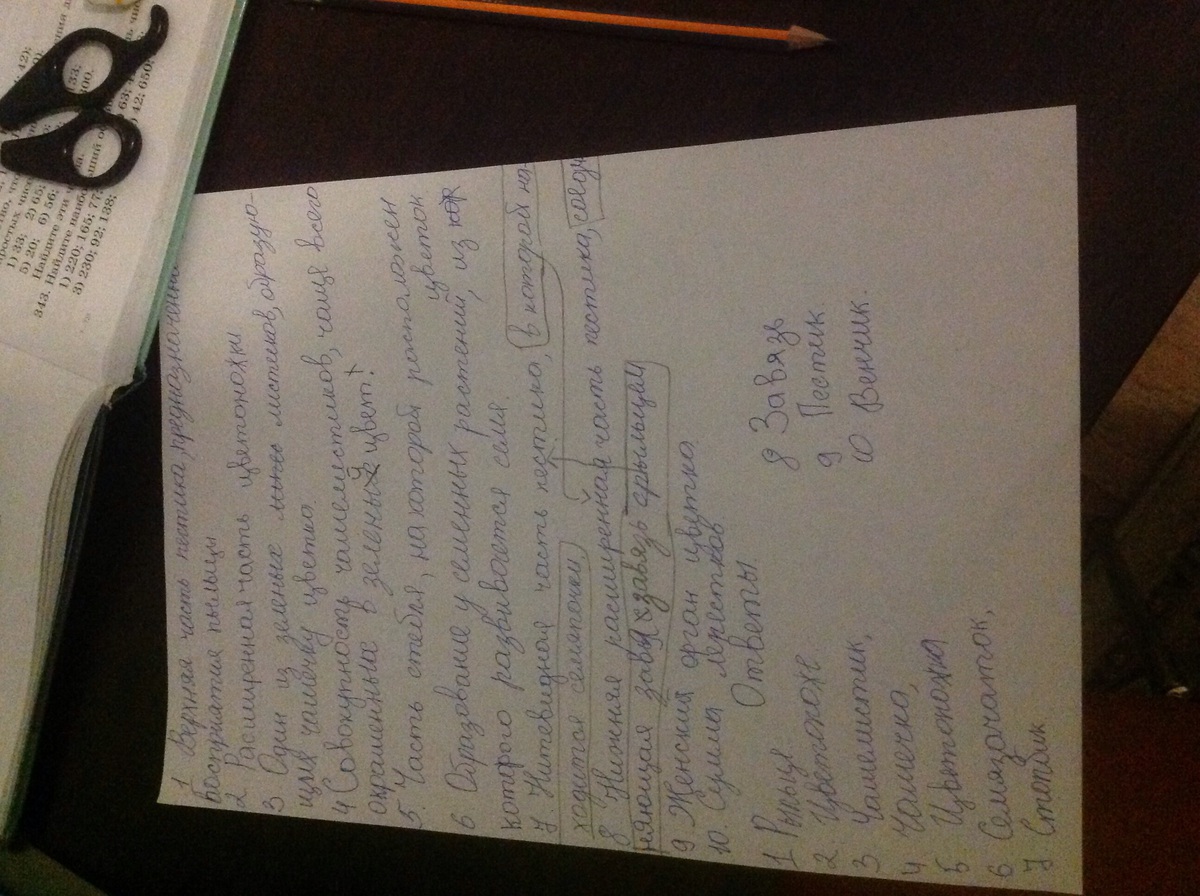 1 Верхняя часть пестика, предназначенная
восприятия пыльцы
2 Расширенная часть цветоножки
3 Один из зеленых листиков, образую-
щих чашечку цветка
4 Совокупность чашелистиков, чаще всего
окрашенных в зеленый цвет.
5. Часть стебля, на которой расположен
цветок
6 Образование у семенных растений, из кᴏᴛᴏр
которого развивается семя.
7 Нитевидная часть пестика, в которой на-
ходятся семяпочки
8 Нижняя расширенная часть пестика, соеди
няющая завязь с рыльцем
9 Женский орган цветка.
10. Сумма лепестков
Ответы.
1 Рыльце
2. Цветоложе
3 Чашелистик,
4 Чашечка,
5 Цветоножка
6 Семязачаток,
7 Столбик
8 Завязь
9 Пестик
10 Венчик.
1) 33; 2) 65;
5) 20; 6) 56;
343. Найдите
1) 220; 165; 77;
3) 230; 92; 138;